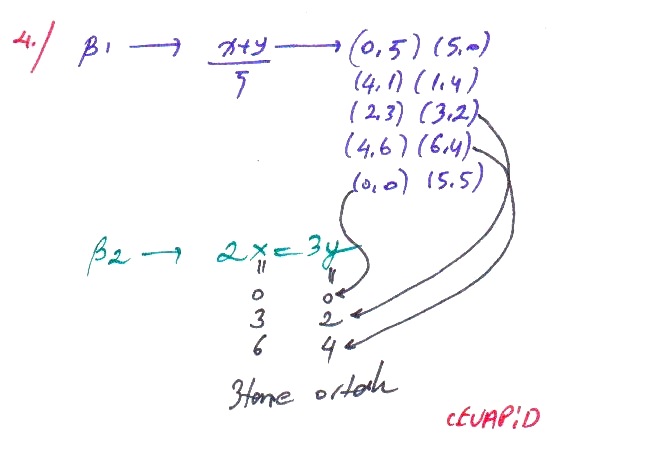 4./ β1 → x+y/5 → (0,5) (5,0)
(4,1) (1,4)
(2,3) (3,2)
(4,6) (6,4)
(0,0) (5,5)
β2 → 2x = 3y
0 0
3 2
6 4
3 tane ortak
CEVAP:D